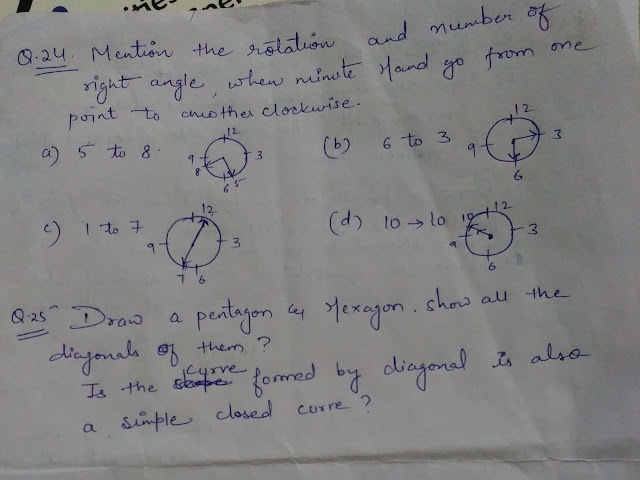 Q.24. Mention the rotation and number of
right angle, when minute Hand go from one
point to another clockwise.
a) 5 to 8. 12 3 5 6 8 9
(b) 6 to 3 12 3 6 9
c) 1 to 7 12 3 6 7 9
(d) 10 → 10 12 3 6 9 10
Q.25 Draw a pentagon & Hexagon. show all the
diagonals of them?
Is the curve formed by diagonal is also
a simple closed curve?